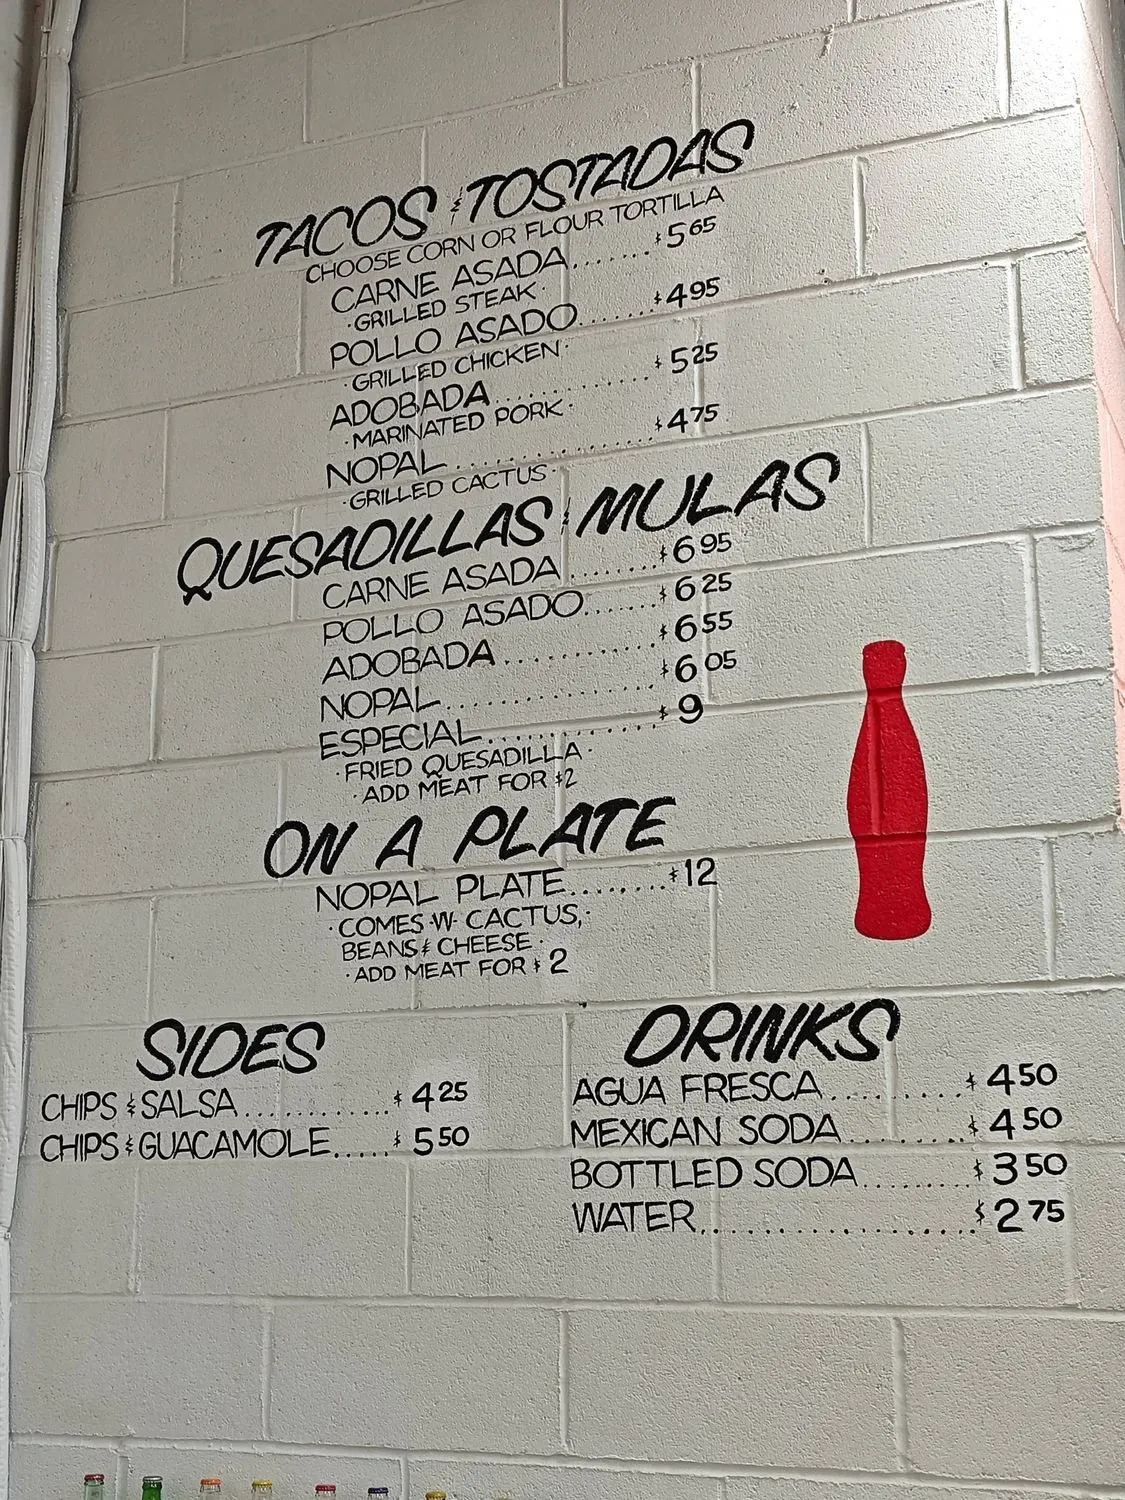 TACOS & TOSTADAS
CHOOSE CORN OR FLOUR TORTILLA
CARNE ASADA....... $5 65
·GRILLED STEAK·
POLLO ASADO....... $4 95
·GRILLED CHICKEN·
ADOBADA.............. $5 25
·MARINATED PORK·
NOPAL.................. $4 75
·GRILLED CACTUS·
QUESADILLAS & MULAS
CARNE ASADA........ $6 95
POLLO ASADO....... $6 25
ADOBADA.............. $6 55
NOPAL.................. $6 05
ESPECIAL............... $9
·FRIED QUESADILLA·
·ADD MEAT FOR $2
ON A PLATE
NOPAL PLATE........ $12
·COMES ·W· CACTUS,·
BEANS & CHEESE·
·ADD MEAT FOR $2
SIDES
CHIPS & SALSA............. $4 25
CHIPS & GUACAMOLE..... $5 50
DRINKS
AGUA FRESCA.......... $4 50
MEXICAN SODA........ $4 50
BOTTLED SODA......... $3 50
WATER.................. $2 75